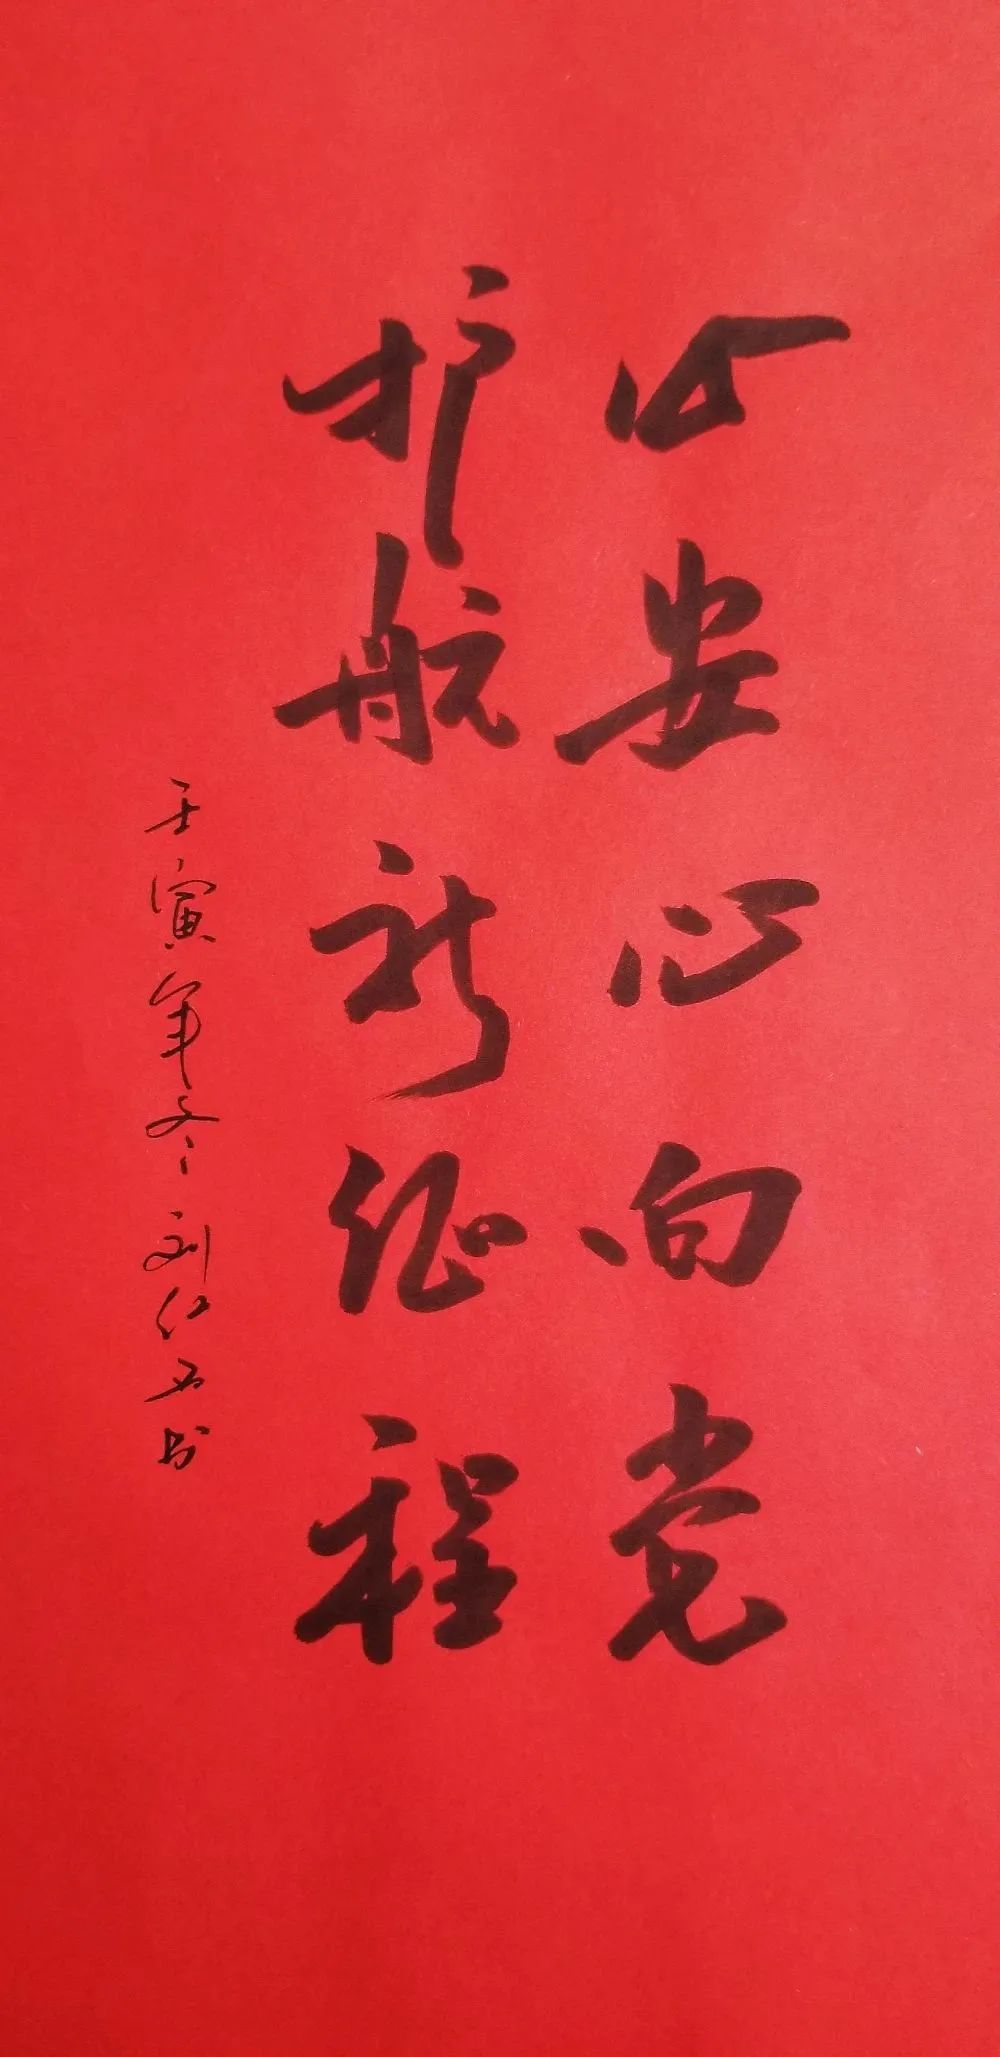 公安心向党
护航新征程
壬寅年冬 刘仁书